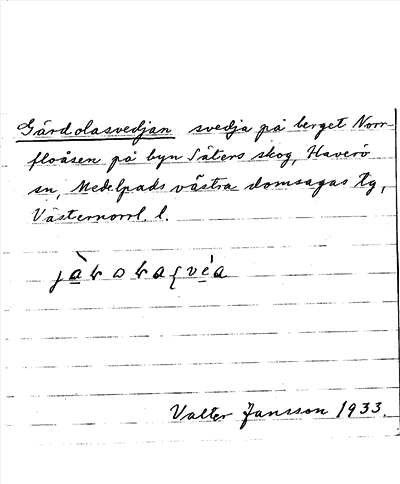 Gårdolasvedjan svedja på berget Norr-
floåsen på byn Säters skog, Haverö
sn, Medelpads västra domsagas tg,
Västernorrl. l.
Valter Jansson 1933.